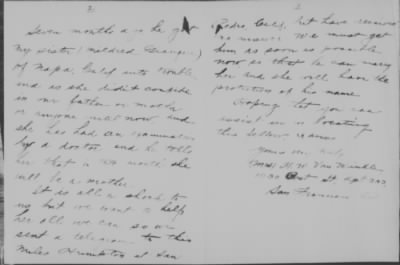 2
Seven months ago he got
my sister (Mildred
of Napa, Calif into trouble
and as she didn't confide
in our father or mother
or anyone until now and
she has had an examination
by a doctor and he tells
her that in two months she
will be a mother.
It is all a shock to
us but we want to help
her all we can so we
sent a telegram to this
Miles at San
Pedro, Calif, but have received
no answer. We must get
him as soon as possible
now so that he can marry
her and she will have the
protection of his name.
Hoping that you can
assist us in locating
this fellow,
Yours
Mrs. H. W. Van Winkle
1130 St. Apt 203
San Francisco